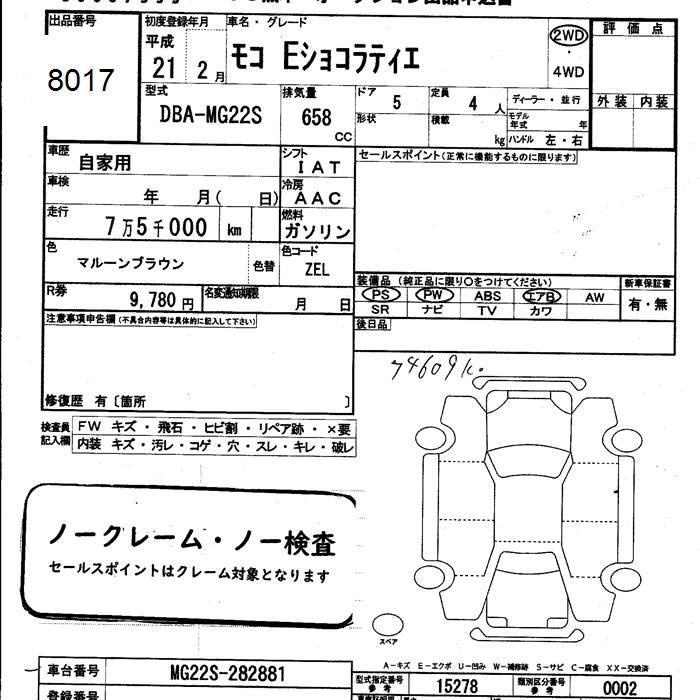 出品番号
8017
初度登録年月
平成
21 2月
車名・グレード
モコ Eショコラティエ
2WD
・
4WD
評価点
外装 内装
型式
DBA-MG22S
排気量
658
CC
ドア
5
定員
4人
ディーラー・並行
形状
積載
kg
モデル
年式 年
ハンドル 左・右
車歴
自家用
シフト
IAT
セールスポイント(正常に機能するものに限ります)
車検
年 月( 日)
冷房
AAC
走行
7万5千000 km
燃料
ガソリン
色
マルーンブラウン
色替
色コード
ZEL
R券
9,780円
名変通知期限
月 日
装備品 (純正品に限り○をつけてください)
PS PW ABS エアB AW
SR ナビ TV カワ
新車保証書
有・無
後日品
注意事項申告欄 (不具合内容等は具体的に記入して下さい)
74609K.
修復歴 有〔箇所 〕
検査員
記入欄
FW キズ・飛石・ヒビ割・リペア跡・×要
内装 キズ・汚レ・コゲ・穴・スレ・キレ・破レ
ノークレーム・ノー検査
セールスポイントはクレーム対象となります
スペア
A-キズ E-エクボ U-凹み W-補修跡 S-サビ C-腐食 XX-交換済
車台番号
MG22S-282881
型式指定番号
参考
15278
類別区分番号
参考
0002
登録番号